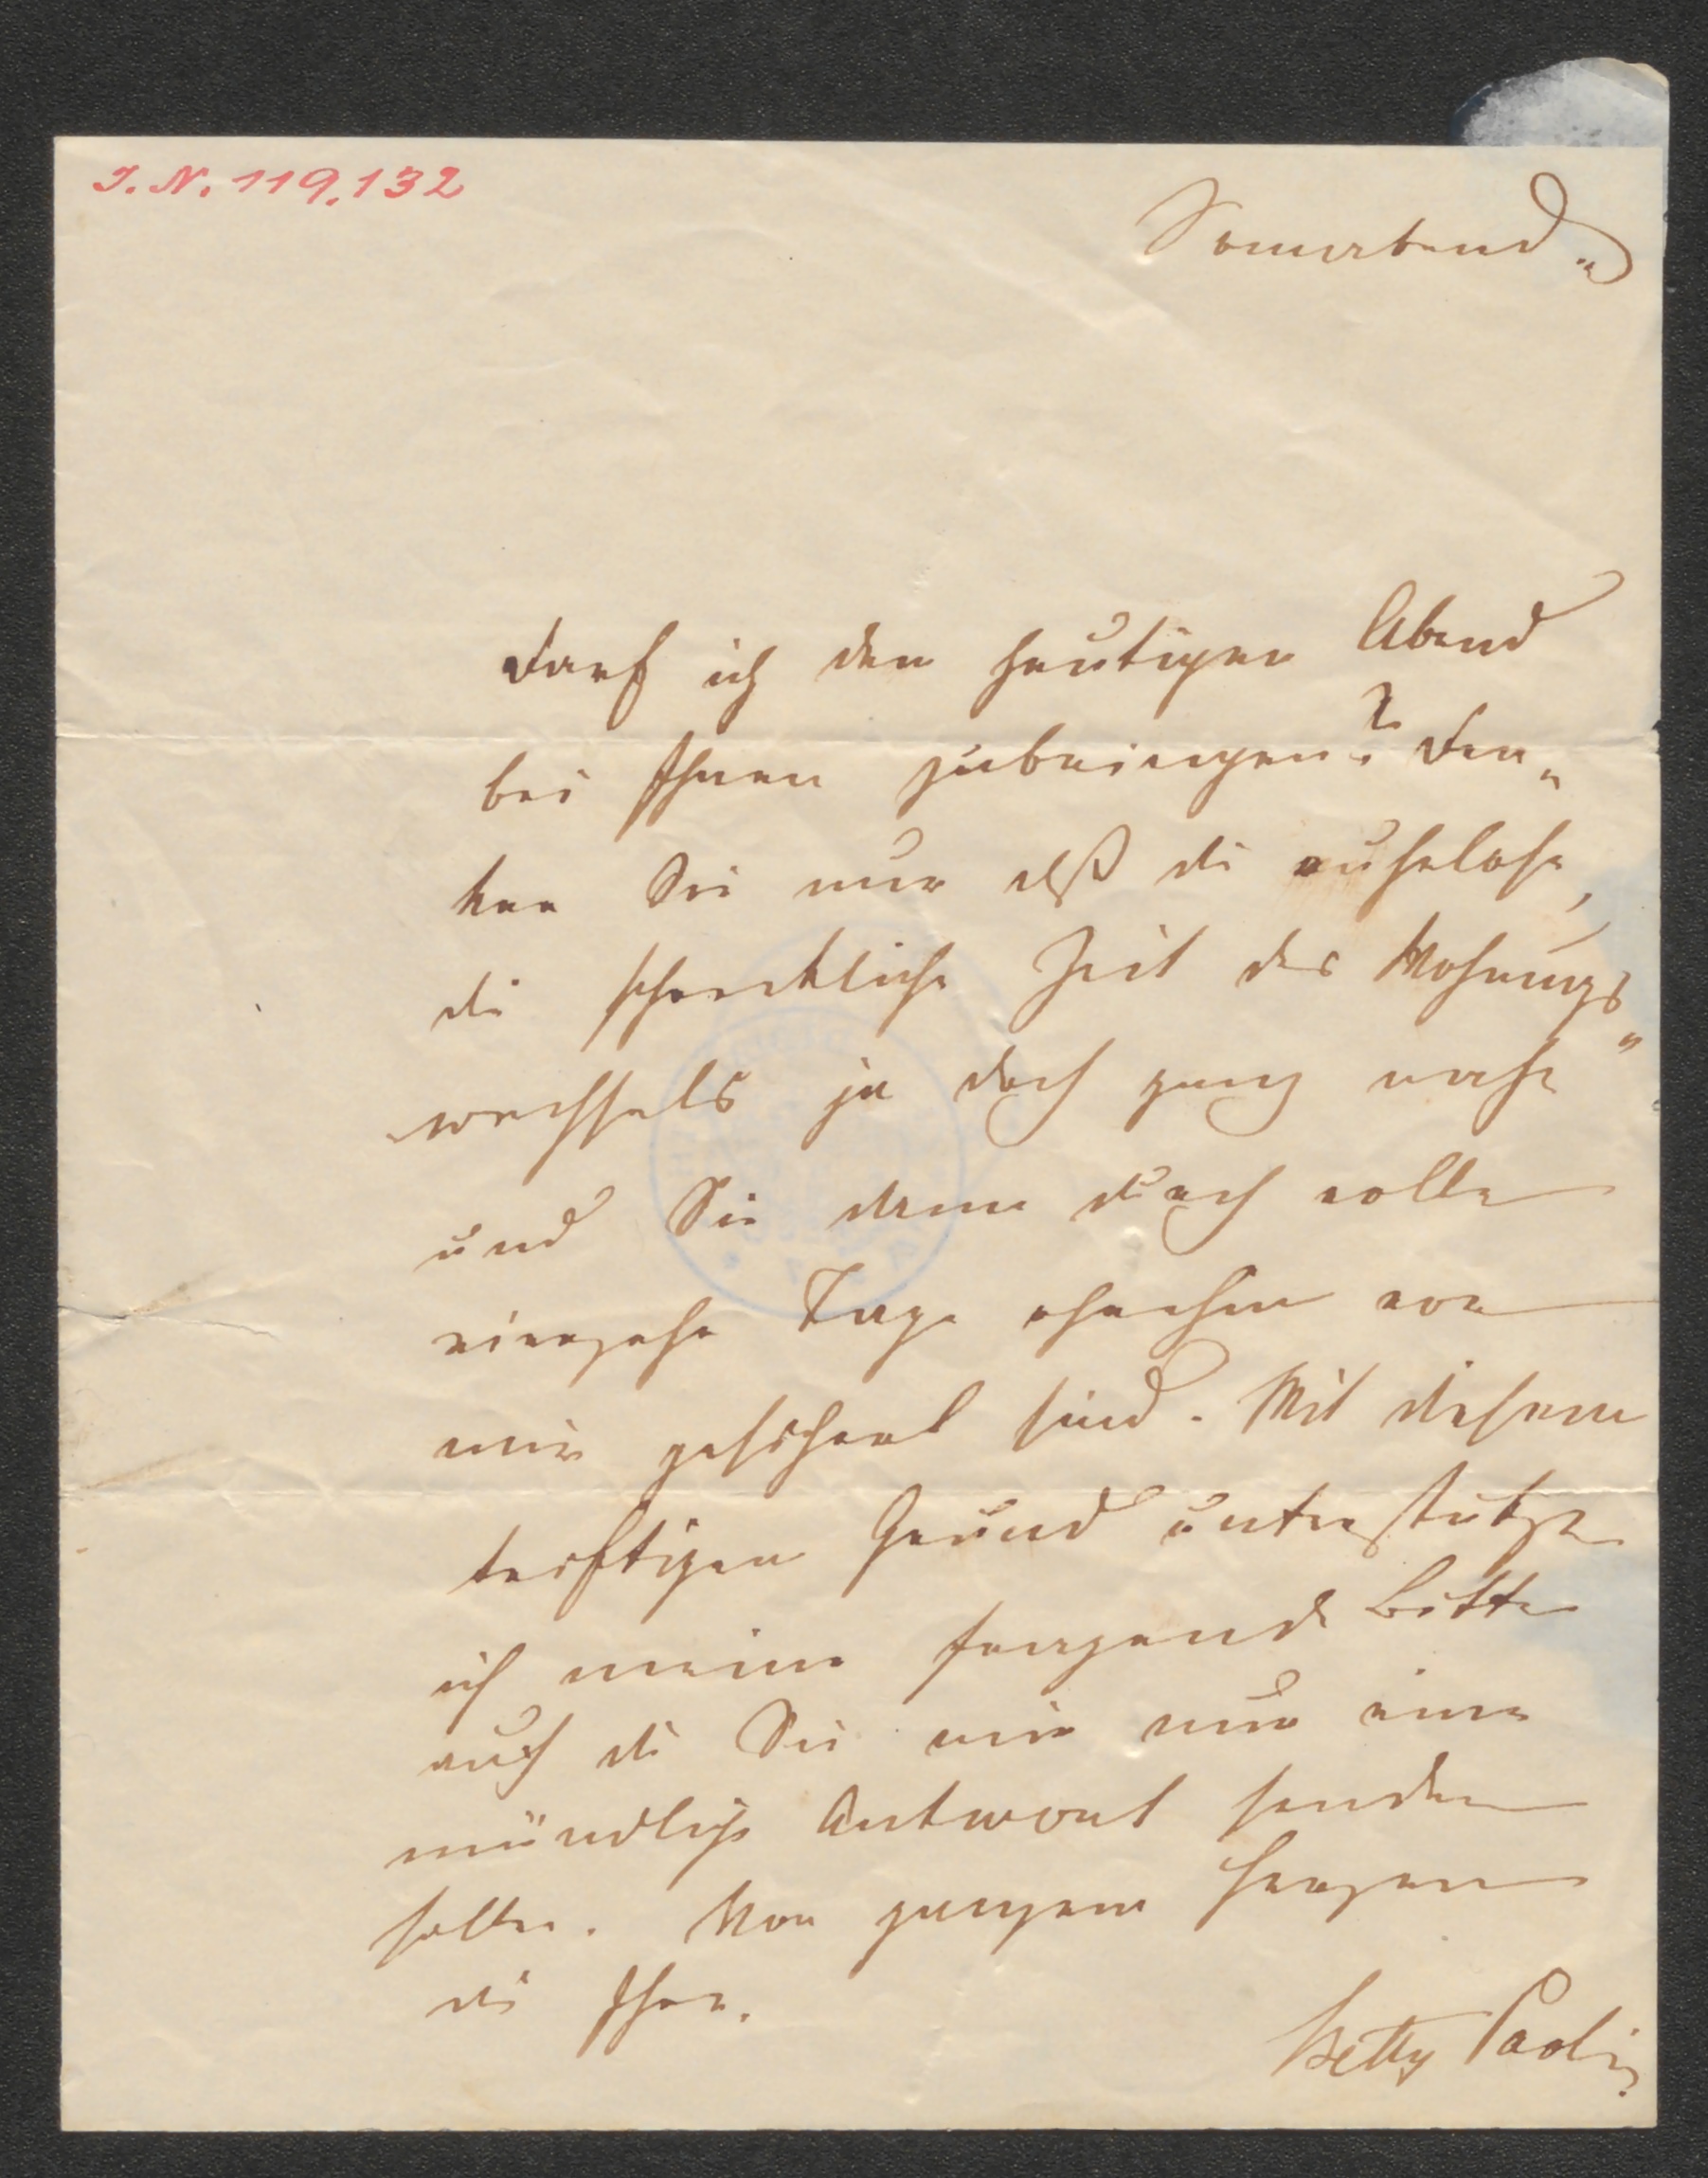 I. N. 119.132
Sonnabend.
Darf ich den heutigen Abend
bei Ihnen zubringen? Den„
ken Sie nur daß die ruhelose,
die schreckliche Zeit des Wohnungs„
wechsels ja doch ganz nahe
und Sie dann durch volle
vierzehn Tage ohnehin vor
mir gesichert sind. Mit diesem
triftigen Grund unterstütze
ich meine fragende Bitte
auf die Sie mir nur eine
mündliche Antwort senden
sollen. Von ganzem Herzen
die Ihre.
Betty Paoli